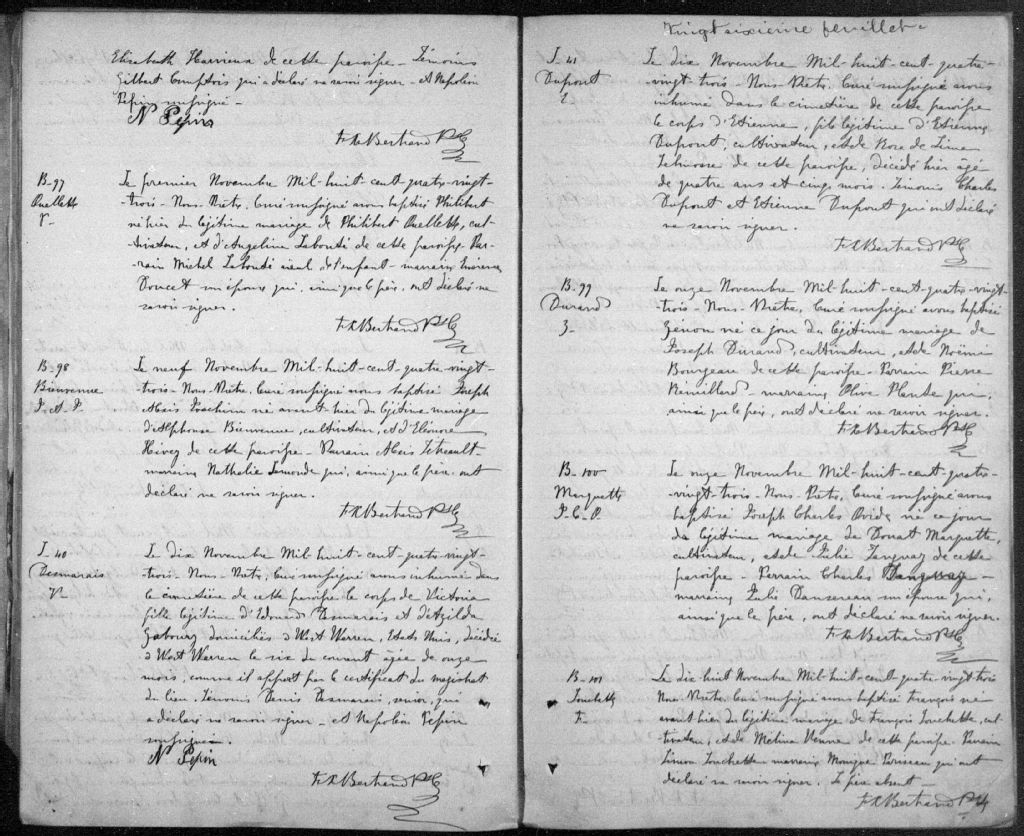 Elisabeth Harrieux de cette paroisse - Témoins
Gilbert Comptois qui a déclaré ne savoir signer - et Napoléon
Pepin soussigné -
N Pepin
Bertrand Ptre
B-97
Ouellette
P-
Le premier Novembre Mil-huit-cent-quatre-vingt-
-trois- Nous- Prêtre, Curé soussigné avons baptisé Philibert
né hier du légitime mariage de Philibert Ouellette, cul-
tivateur, et d'Angeline Labonté de cette paroisse Par-
rain Michel Labonté aieul de l'enfant - marraine
Doucet son épouse qui, ainsi que le père, ont déclaré ne
savoir signer.
Bertrand Ptre
B-98
Bienvenue
J. A. J.
Le neuf Novembre Mil-huit-cent-quatre-vingt-
trois- Nous- Prêtre, Curé soussigné avons baptisé Joseph
Alexis Joachim né avant hier du légitime mariage
d'Alphonse Bienvenue, cultivateur, et d'Eléonore
Hivey de cette paroisse - Parrain Alexis Tétreault-
marraine Nathalie Lamonde qui, ainsi que le père, ont
déclaré ne savoir signer.
Bertrand Ptre
S-40
Desmarais
V.
Le dix Novembre Mil-huit-cent-quatre-vingt-
trois- Nous- Prêtre, Curé soussigné avons inhumé dans
le cimetière de cette paroisse le corps de Victoria
fille légitime d'Edouard Desmarais et d'Azilda
Gaboury domiciliés à West Warren, Etats Unis, décédée
à West Warren le six du courant agée de onze
mois, comme il appert par le certificat du magistrat
du lieu. Témoins Denis Desmarais, senior, qui
a déclaré ne savoir signer - et Napoléon Pepin
soussigné.
N Pepin
Bertrand Ptre
Vingt sixième feuillet-
S-41
Dupont
E.
Le dix Novembre Mil-huit-cent-quatre-
vingt-trois- Nous- Prêtre, Curé soussigné avons
inhumé dans le cimetière de cette paroisse
le corps d'Etienne, fils légitime d'Etienne
Dupont, cultivateur, et de Rose de Lima
de cette paroisse, décédé hier âgé
de quatre ans et cinq mois. Témoins Charles
Dupont et Etienne Dupont qui ont déclaré
ne savoir signer.
Bertrand Ptre
B-99
Durand
Z-
Le onze Novembre Mil-huit-cent-quatre-vingt-
-trois- Nous- Prêtre, Curé soussigné avons baptisé
Zénon né ce jour du légitime mariage de
Joseph Durand, cultivateur, et de Noëmie
Bourgeau de cette paroisse- Parrain Pierre
Remillard - marraine Olive Plante qui,
ainsi que le père, ont déclaré ne savoir signer.
Bertrand Ptre
B-100
Marquette
J-C-O.
Le onze Novembre Mil-huit-cent-quatre-
-vingt-trois- Nous- Prêtre, Curé soussigné avons
baptisé Joseph Charles Ovide, né ce jour
du légitime mariage de Donat Marquette,
cultivateur, et de Julie Tanguay de cette
paroisse - Parrain Charles Tanguay -
marraine Julie Dansereau son épouse qui,
ainsi que le père, ont déclaré ne savoir signer.
Bertrand Ptre
B-101
Touchette
F.
Le dix huit Novembre Mil-huit-cent-quatre-vingt-trois
Nous- Prêtre, Curé soussigné avons baptisé François né
avant hier du légitime mariage de François Touchette, cul-
tivateur, et de Mélina Venne de cette paroisse. Parrain
Simon Touchette marraine Monique Brusseau qui ont
déclaré ne savoir signer. Le père absent-
Bertrand Ptre